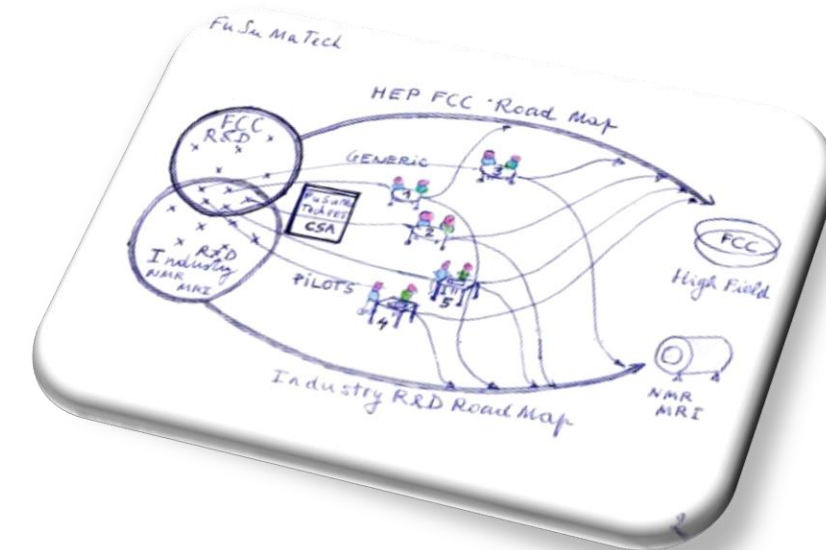 FuSuMaTech
HEP FCC Road Map
FCC
R&D
GENERIC
3
1
CSA
2
R&D
Industry
NMR
MRI
PILOTS
5
4
FCC
High Field
NMR
MRI
Industry R&D Road Map
2